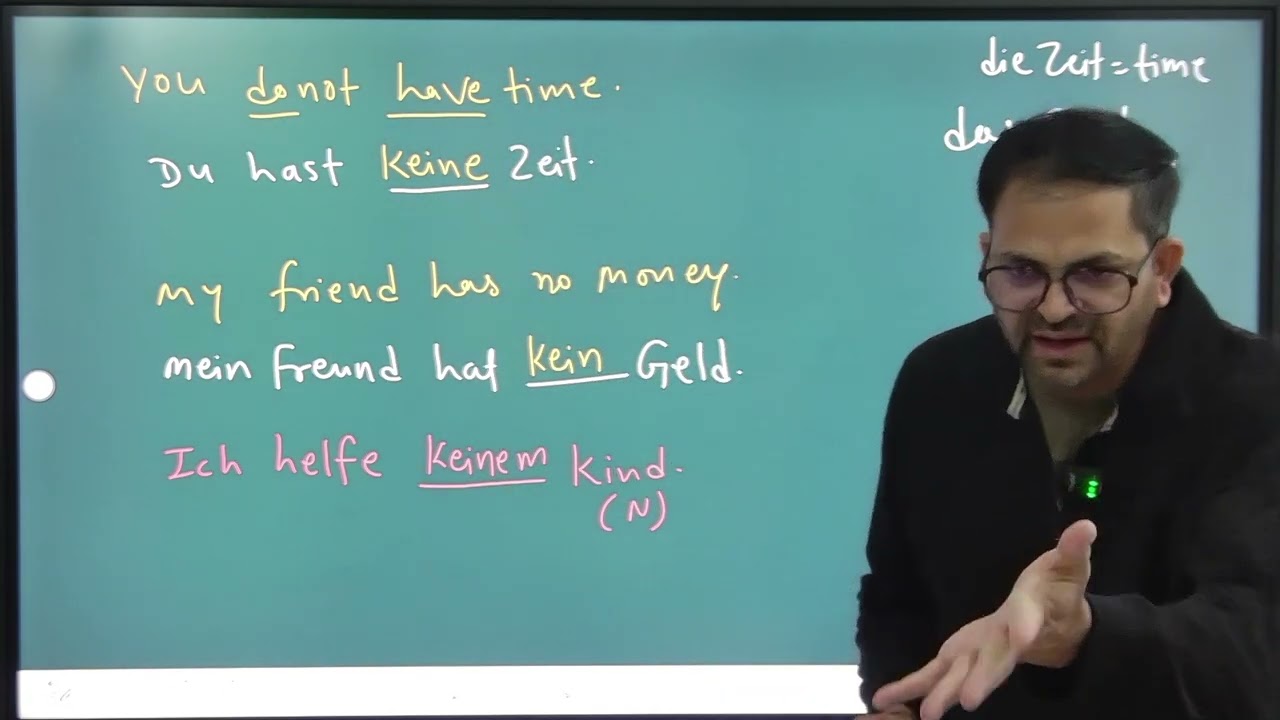 You do not have time.
Du hast keine Zeit.
my friend has no money.
mein Freund hat kein Geld.
Ich helfe keinem Kind.
(N)
die Zeit = time